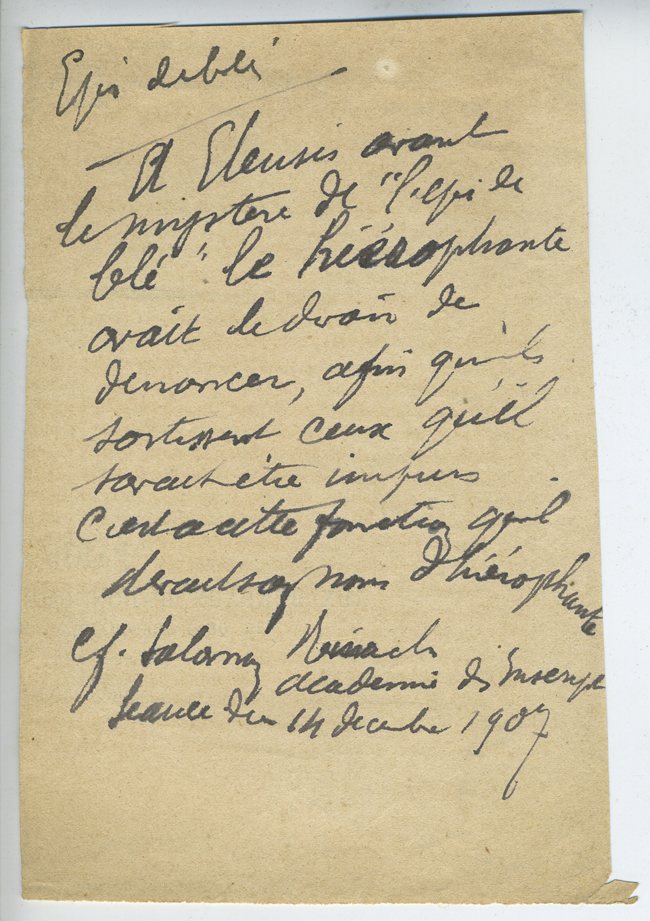 Epis de blé
A Eleusis avant
le mystère de "l'epi de
blé" le hiérophante
avait le droit de
denoncer, afin qu'ils
sortissent ceux qu'il
savait être impurs
C'est a cette fonction qu'il
devait son nom d'hiérophante
Cf. Salomon Reinach
academie des Inscript
Seance du 14 decembre 1907